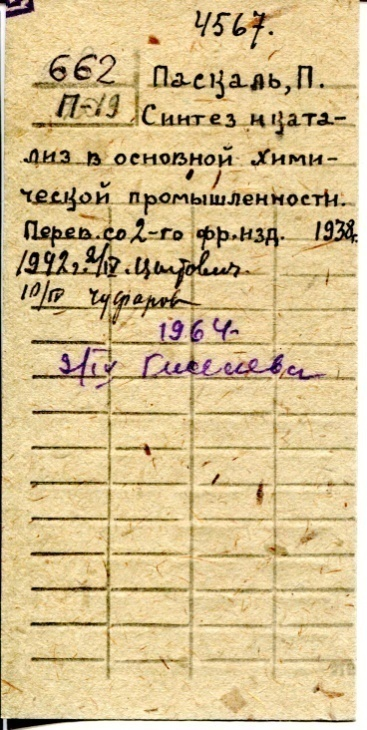 4567.
662
П-19
Паскаль, П.
Синтез и ката-
лиз в основной хими-
ческой промышленности.
Перев. со 2-го фр. изд. 1938г.
1942г. 2/IV. Цытович
10/IV Чуфаров
1964
9/IV Гиселева